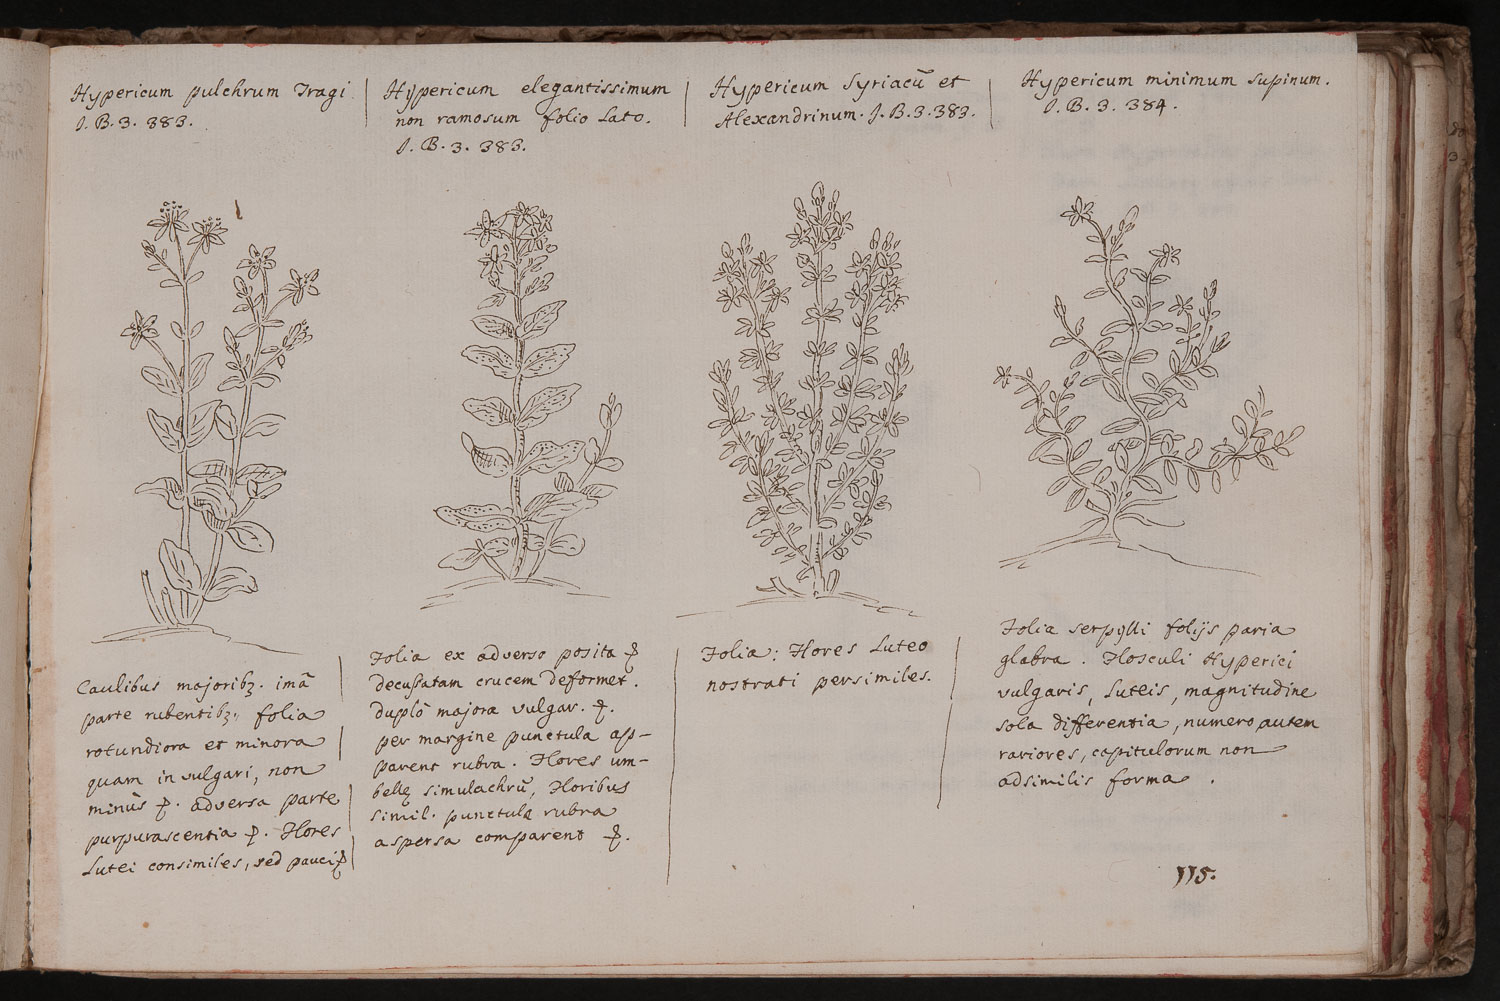 Hypericum pulchrum Tragi
J. B. 3. 383.
Hypericum elegantissimum
non ramosum folio lato.
J. B. 3. 383.
Hypericum Syriacũ et
Alexandrinum. J. B. 3. 383.
Hypericum minimum supinum.
J. B. 3. 384.
Caulibus majoribꝫ. imâ
parte rubentibꝫ, folia
rotundiora et minora
quam in vulgari, non
minùs p. adversa parte
purpurascentia p. Flores
Lutei consimiles, sed pauci
Folia ex adverso posita
decußatam crucem deformet.
duplò majora vulgar. p.
per margine punctula ap-
parent rubra. Flores um-
bellę simulachrũ, Floribus
simil. punctula rubra
aspersa comparent p.
Folia: Flores Luteo
nostrati persimiles.
Folia serpylli folijs paria
glabra. Flosculi Hyperici
vulgaris, Luteis, magnitudine
sola differentia, numero autem
rariores, capitulorum non
adsimilis forma.
115.